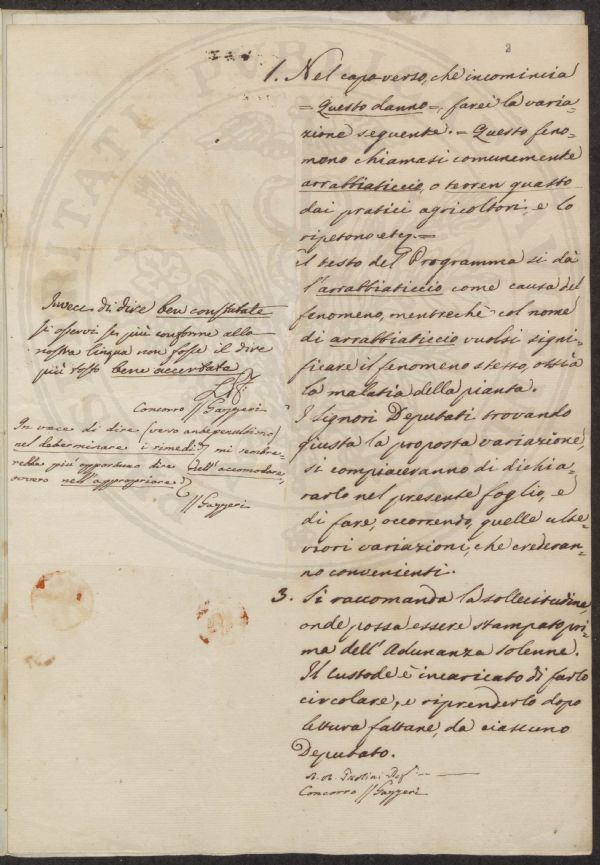 2
1. Nel capo verso, che incomincia
= Questo danno =, farei la varia-
zione seguente. = Questo feno-
meno chiamasi comunemente
arrabbiaticcio, o terren guasto
dai pratici agricoltori, e lo
ripetono etc. =
il testo del Programma si dà
l'arrabbiaticcio come causa del
fenomeno, mentrechè col nome
di arrabbiaticcio vuolsi signi-
ficare il fenomeno stesso, ossia
la malatia della pianta.
I Signori Deputati trovando
giusta la proposta variazione,
si compiaceranno di dichia-
rarlo nel presente foglio, e
di fare, occorrendo, quelle ulte-
riori variazioni, che crederan-
no convenienti.
3. Si raccomanda la sollecitudine,
onde possa essere stampato pri-
ma dell'Adunanza solenne.
Il Custode è incaricato di farlo
circolare, e riprenderlo dopo
lettura fattane, da ciascuno
Deputato.
Paolini
Concorro Gazzeri
Invece di dire ben constatate
si osservi se più conforme alla
nostra lingua non fosse il dire
più tosto bene accertata
Concorro Gazzeri
In vece di dire (verso antepenultimo)
nel determinare i rimedi, mi sembre-
rebbe più opportuno dire dell'accomodare,
ovvero nell'appropriare
Gazzeri